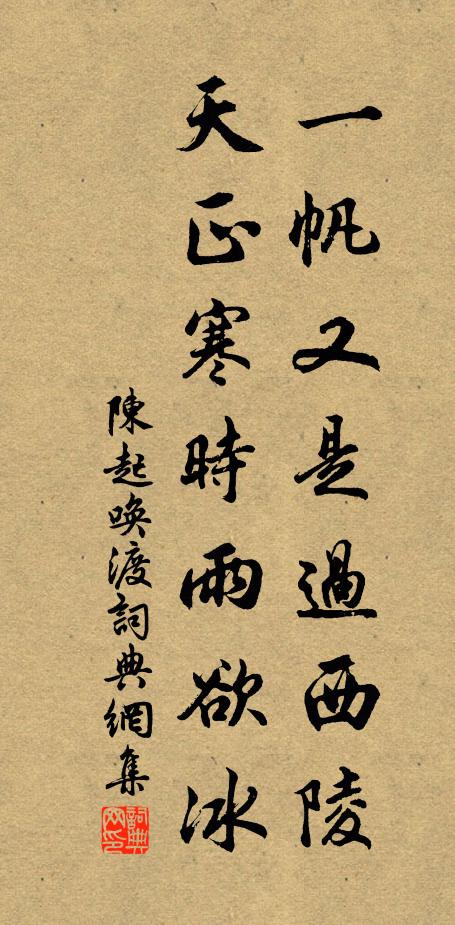 一帆又是過西陵
天正寒時雨欲冰
陳起喚渡詞典網集
詞典网印